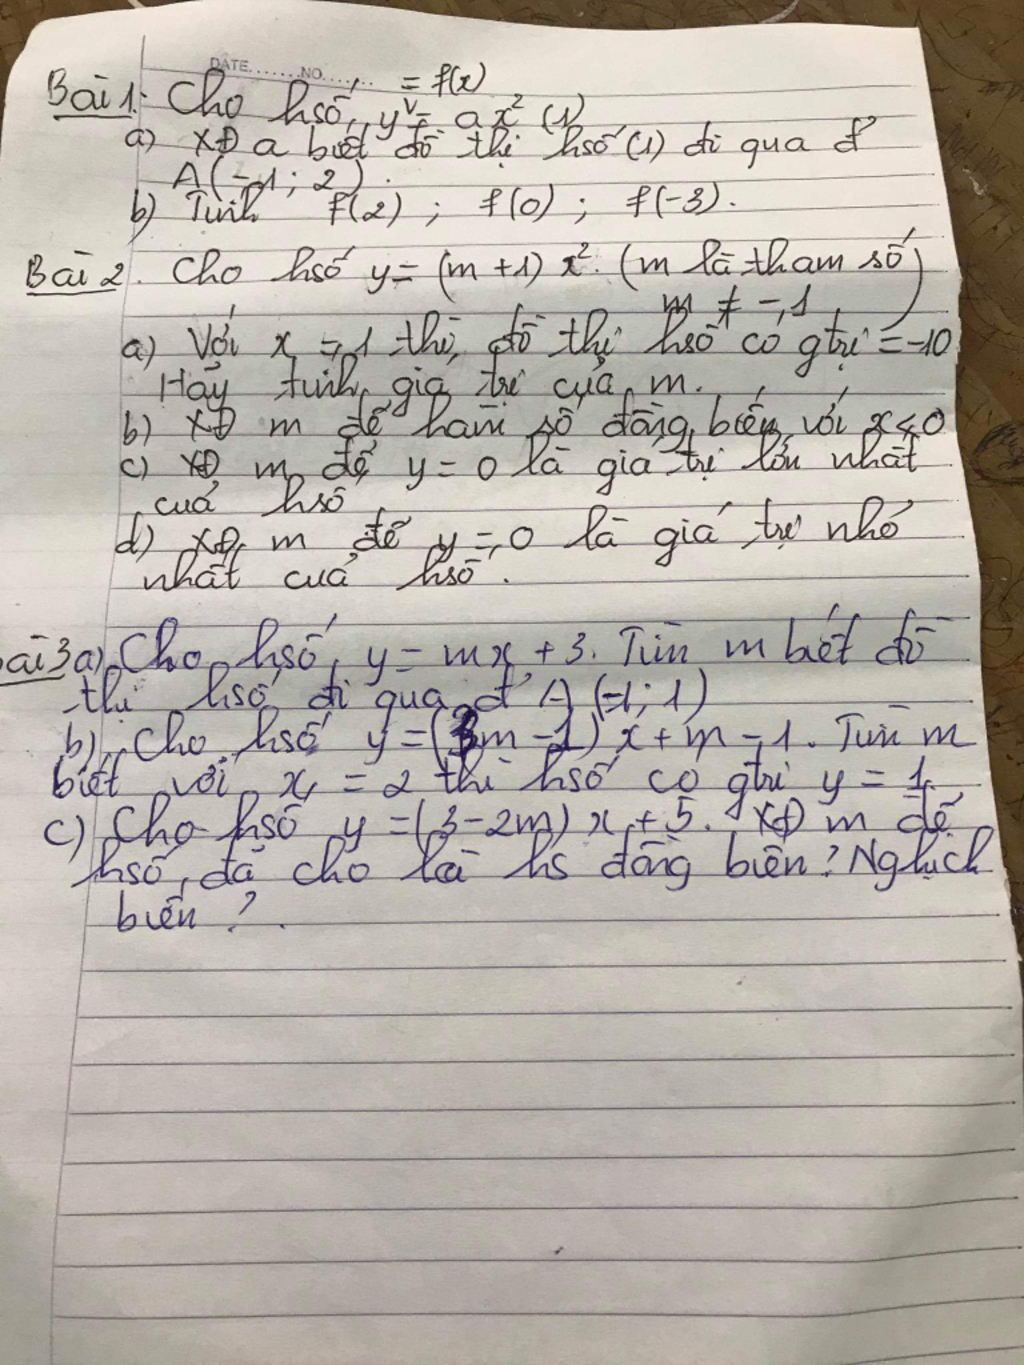 DATE.......NO.......
= f(x)
Bài 1: Cho hsố y = ax² (1)
a) XĐ a biết đồ thị hsố (1) đi qua đ'
A(-1; 2).
b) Tính f(2) ; f(0) ; f(-3).
Bài 2. Cho hsố y = (m+1) x². (m là tham số)
m ≠ -1
a) Với x = 1 thì đồ thị hsố có gtrị = -10
Hãy tính giá trị của m.
b) XĐ m để hàm số đồng biến với x < 0
c) XĐ m để y = 0 là giá trị lớn nhất
của hsố
d) XĐ m để y = 0 là giá trị nhỏ
nhất của hsố.
ài 3 a) Cho hsố y = mx + 3. Tìm m biết đồ
thị hsố đi qua đ' A (-1; 1)
b) Cho hsố y = (3m - 1) x + m - 1. Tìm m
biết với x = 2 thì hsố có gtrị y = 1.
c) Cho hsố y = (3 - 2m) x + 5. XĐ m để
hsố đã cho là hs đồng biến? Nghịch
biến?.